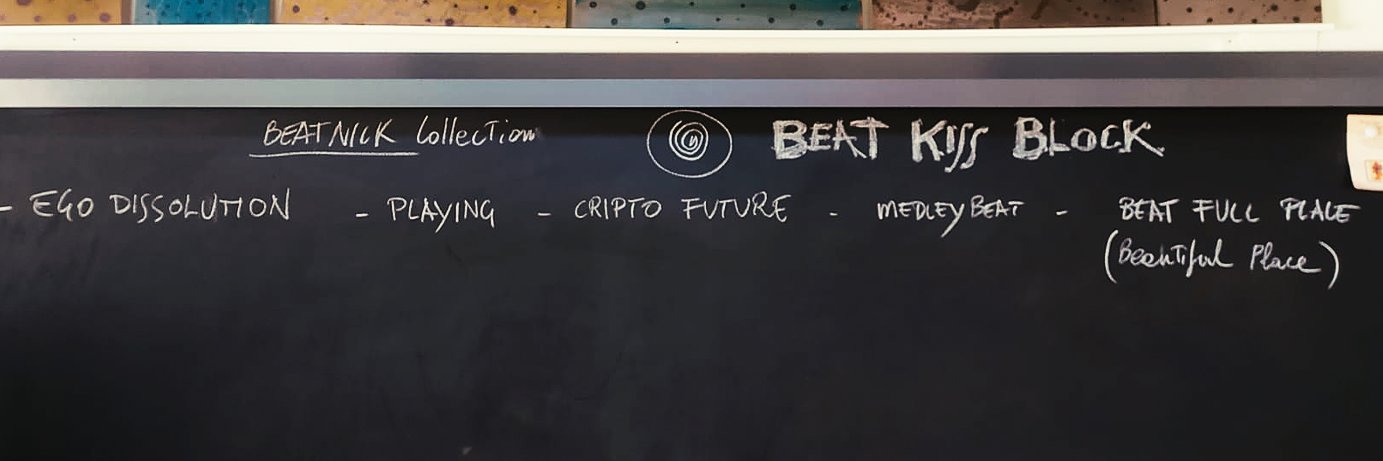 BEATNICK Collection BEAT KISS BLOCK
- EGO DISSOLUTION - PLAYING - CRIPTO FUTURE - MEDLEY BEAT - BEAT FULL PLACE
(Beautiful Place)